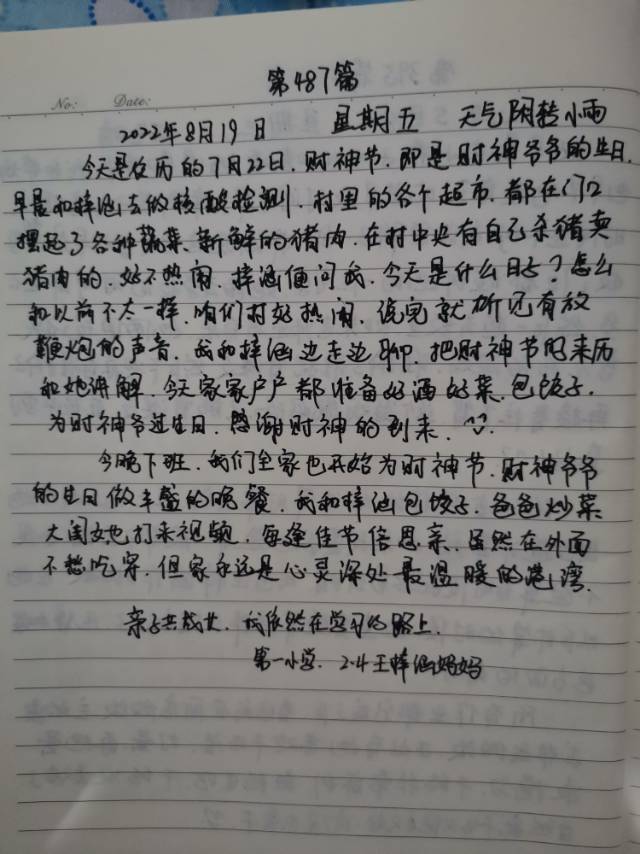 第487篇
No: Date:
2022年8月19日 星期五 天气阴转小雨
今天是农历的7月22日.财神节.即是财神爷爷的生日.
早晨和梓涵去做核酸检测.村里的各个超市.都在门口
摆起了各种蔬菜.新鲜的猪肉.在村中央有自己杀猪卖
猪肉的.好不热闹.梓涵便问我.今天是什么日子?怎么
和以前不太一样.咱们村好热闹.说完就听见有放
鞭炮的声音.我和梓涵边走边聊.把财神节的来历
和她讲解.今天家家户户都准备好酒好菜.包饺子.
为财神爷过生日.感谢财神的到来.
今晚下班.我们全家也开始为财神节.财神爷爷
的生日做丰盛的晚餐.我和梓涵包饺子.爸爸炒菜
大闺女也打来视频.每逢佳节倍思亲.虽然在外面
不愁吃穿.但家永远是心灵深处最温暖的港湾.
亲子共成长.我依然在学习的路上.
第一小学.2.4王梓涵妈妈